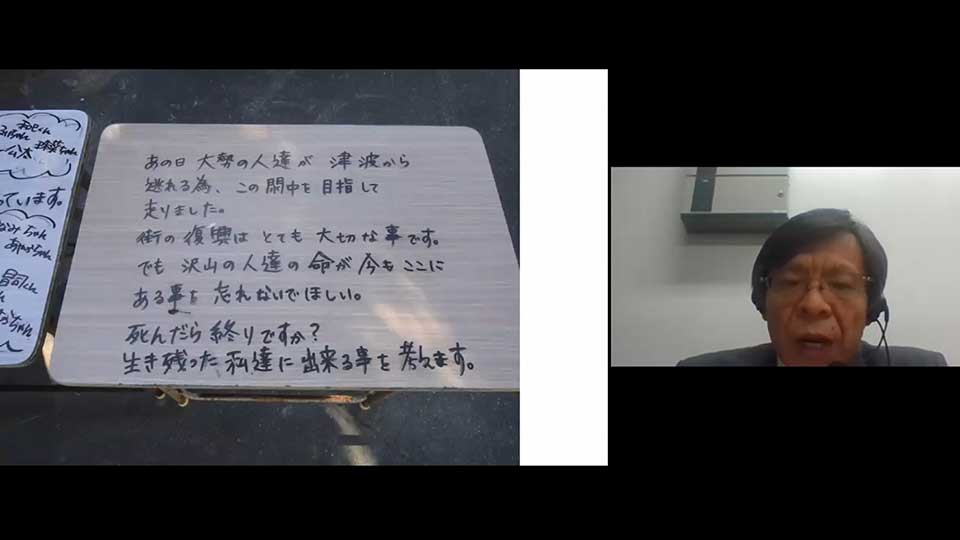 あの日 大勢の人達が 津波から
逃れる為、この閖中を目指して
走りました。
街の復興は とても 大切な事です。
でも 沢山の人達の 命が 今も ここに
ある事を 忘れないでほしい。
死んだら 終りですか?
生き残った 私達に 出来る事を 考えます。
っています。
ちゃん